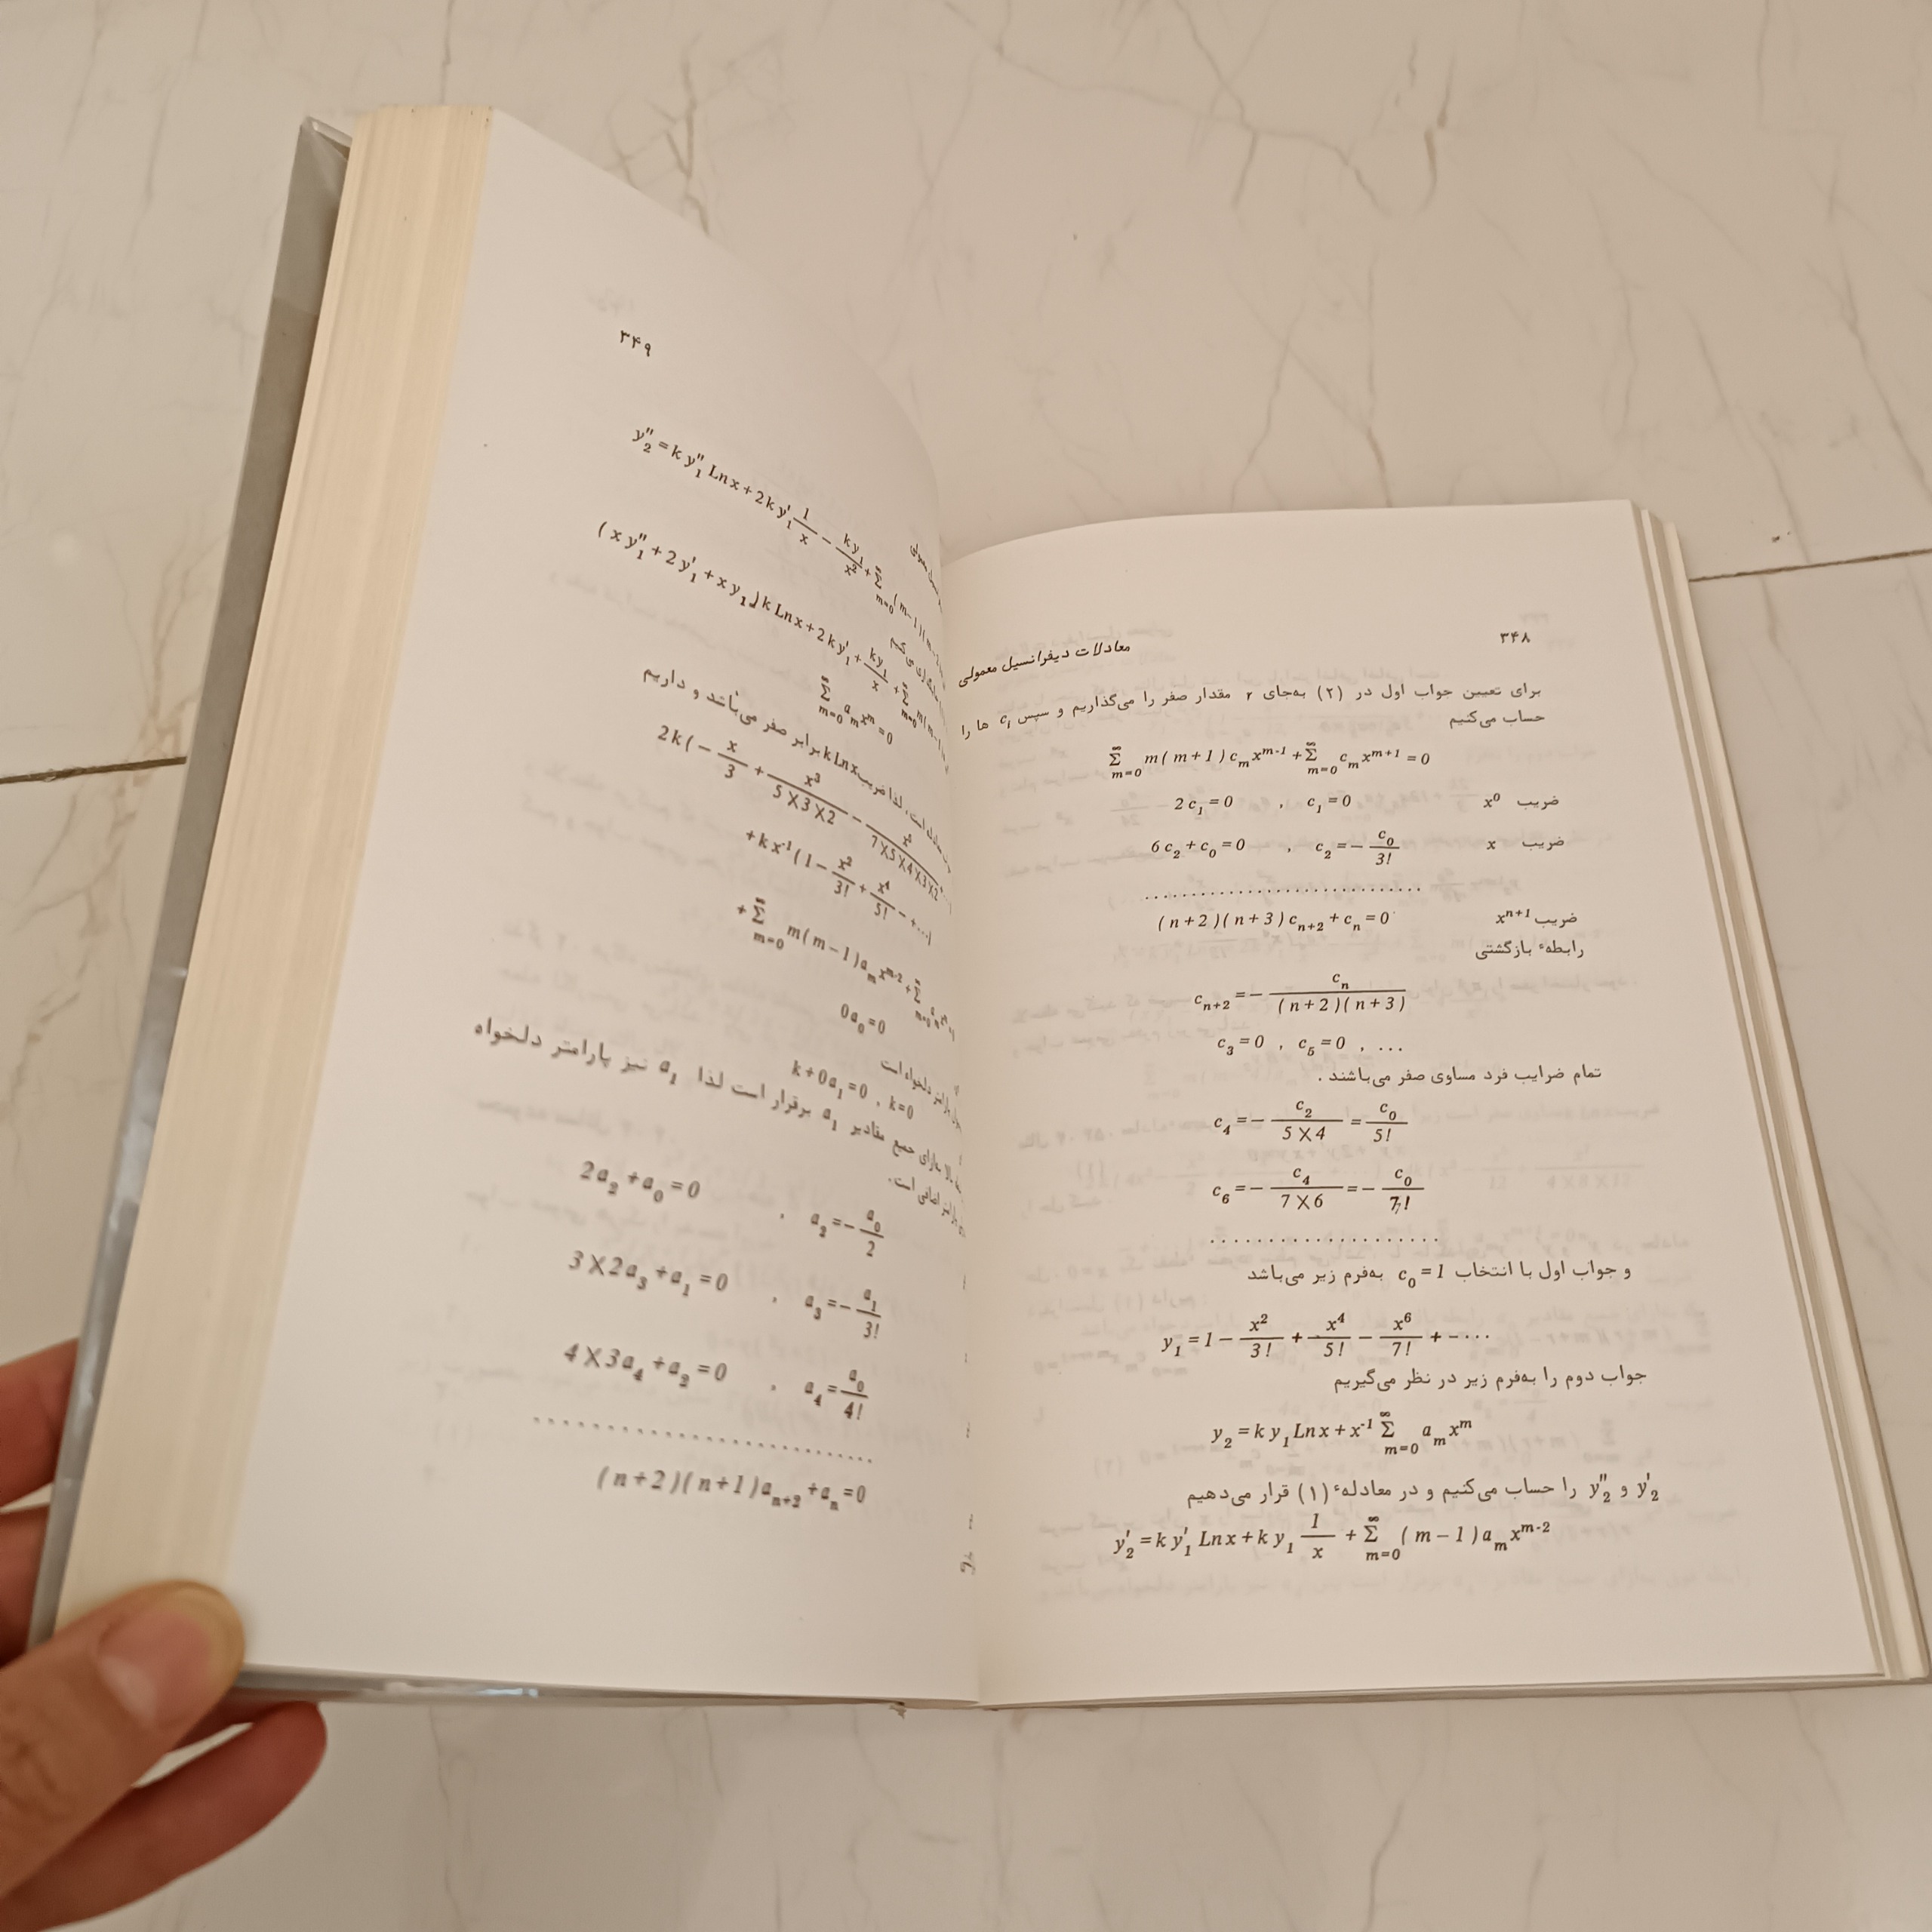 ۳۴۸
معادلات دیفرانسیل معمولی
برای تعیین جواب اول در (۲) به‌جای r مقدار صفر را می‌گذاریم و سپس c_i ها را
حساب می‌کنیم
∑_{m=0}^{∞} m(m+1)c_m x^{m-1} + ∑_{m=0}^{∞} c_m x^{m+1} = 0
ضریب x^0 2c_1=0 , c_1=0
ضریب x 6c_2+c_0=0 , c_2=-c_0/3!
..............................
ضریب x^{n+1} (n+2)(n+3)c_{n+2}+c_n=0
رابطهٔ بازگشتی
c_{n+2}=-c_n/((n+2)(n+3))
c_3=0 , c_5=0 , ...
تمام ضرایب فرد مساوی صفر می‌باشند .
c_4=-c_2/(5×4)=c_0/5!
c_6=-c_4/(7×6)=-c_0/7!
......................
و جواب اول با انتخاب c_0=1 به‌فرم زیر می‌باشد
y_1=1-x^2/3!+x^4/5!-x^6/7!+-...
جواب دوم را به‌فرم زیر در نظر می‌گیریم
y_2=k y_1 Ln x+x^{-1} ∑_{m=0}^{∞} a_m x^m
y'_2 و y''_2 را حساب می‌کنیم و در معادلهٔ (۱) قرار می‌دهیم
y'_2=k y'_1 Ln x+k y_1 1/x + ∑_{m=0}^{∞} (m-1)a_m x^{m-2}
۳۴۹
معمولی
y''_2=k y''_1 Ln x+2k y'_1 1/x - k y_1/x^2 + ∑_{m=0}^{∞} (m-1)(m-
(x y''_1+2y'_1+x y_1)k Ln x+2k y'_1+k y_1/x+∑_{m=0}^{∞} m(m-1)
∑_{m=0}^{∞} a_m x^m=0
است، لذا ضریب k Ln x برابر صفر می‌باشد و داریم
2k(-x/3+x^3/(5×3×2)-x^5/(7×5×4×3×2)
+k x^{-1}(1-x^2/3!+x^4/5!-+...)
+∑_{m=0}^{∞} m(m-1)a_m x^{m-2}+∑_{m=0}^{∞} a_m x^m
0a_0=0
دلخواه است
k+0a_1=0 , k=0
بالا به‌ازای جمیع مقادیر a_1 برقرار است لذا a_1 نیز پارامتر دلخواه
اضافی است.
2a_2+a_0=0 , a_2=-a_0/2
3×2a_3+a_1=0 , a_3=-a_1/3!
4×3a_4+a_2=0 , a_4=a_0/4!
..............................
(n+2)(n+1)a_{n+2}+a_n=0